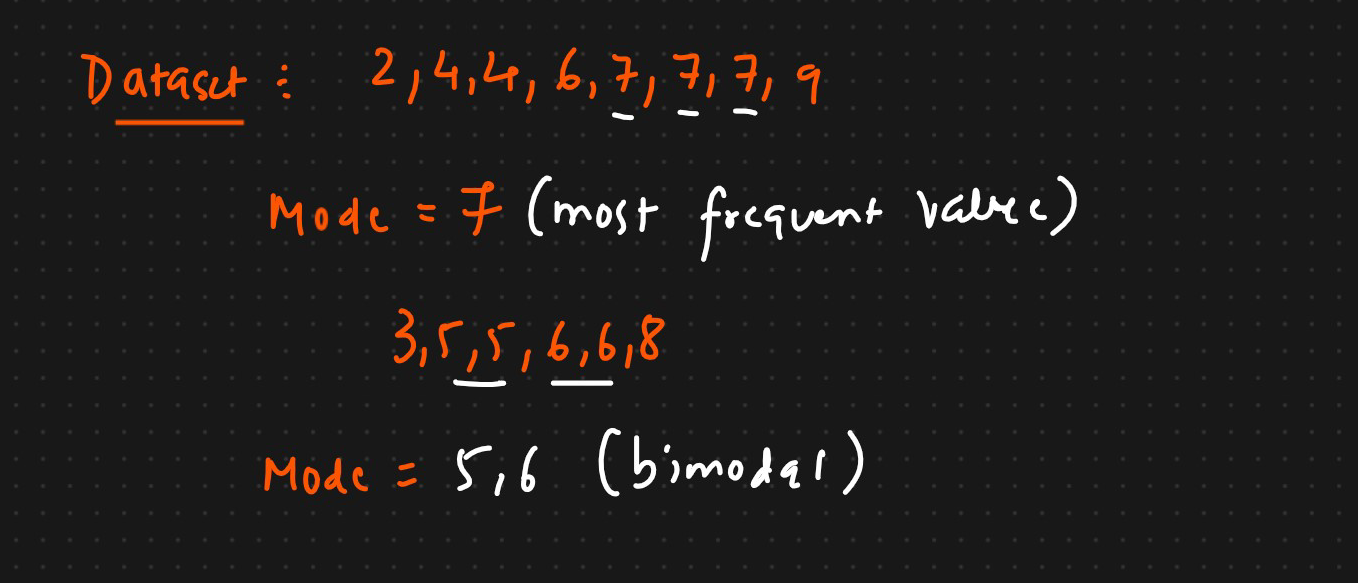 Dataset : 2,4,4,6,7,7,7,9
Mode = 7 (most frequent value)
3,5,5,6,6,8
Mode = 5,6 (bimodal)